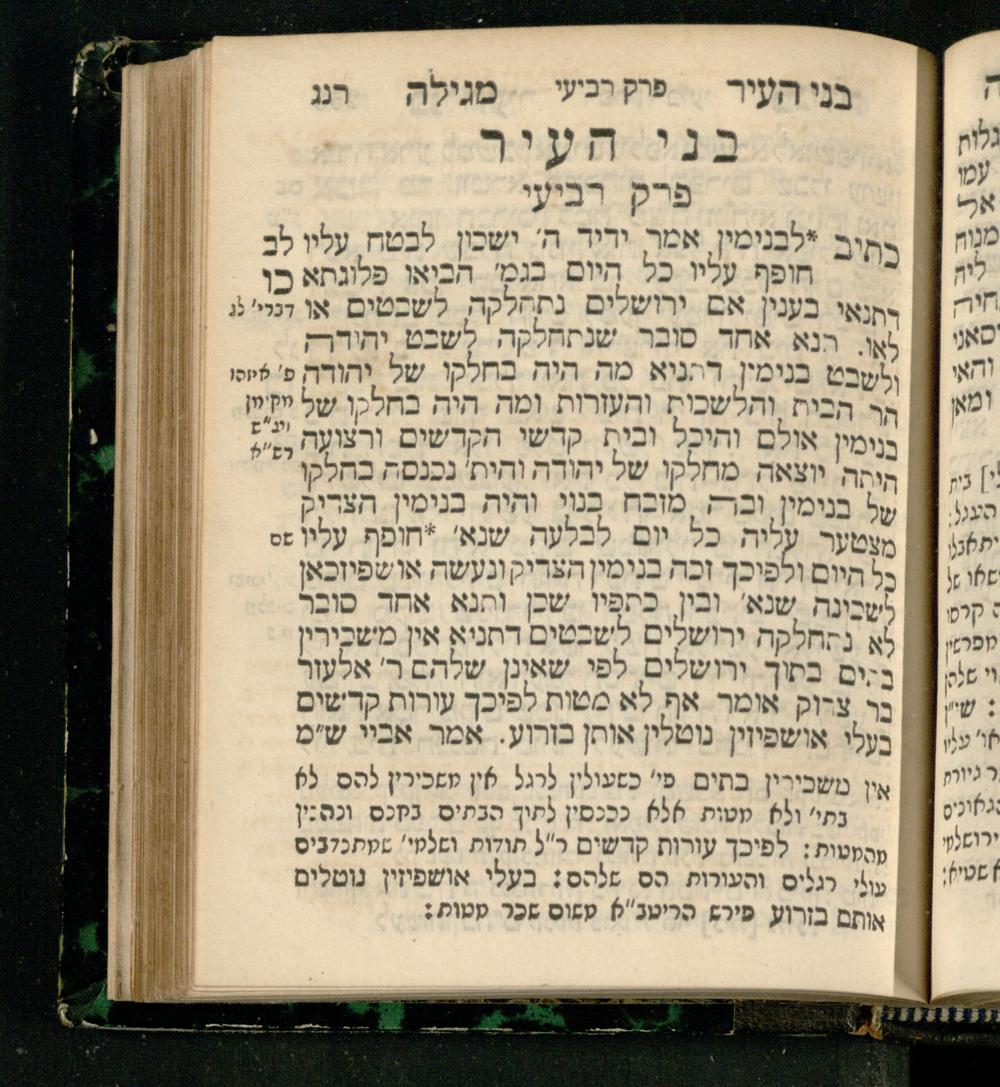 בני העיר פרק רביעי מגילה רנג
בני העיר
פרק רביעי
כתיב *לבנימין אמר ידיד ה׳ ישכון לבטח עליו לב
חופף עליו כל היום בגמ׳ הביאו פלוגתא כו
דתנאי בענין אם ירושלים נתחלקה לשבטים או דברי׳ לג
לאו. תנא אחד סובר שנתחלקה לשבט יהודה
ולשבט בנימין דתניא מה היה בחלקו של יהודה פ׳ איזהו
הר הבית והלשכות והעזרות ומה היה בחלקו של מקימן
בנימין אולם והיכל ובית קדשי הקדשים ורצועה
היתה יוצאה מחלקו של יהודה והית׳ נכנסה בחלקו רש״א
של בנימין ובה מזבח בנוי והיה בנימין הצדיק
מצטער עליה כל יום לבלעה שנא׳ *חופף עליו שם
כל היום ולפיכך זכה בנימין הצדיק ונעשה אושפיזכאן
לשכינה שנא׳ ובין כתפיו שכן ותנא אחד סובר
לא נתחלקה ירושלים לשבטים דתניא אין משכירין
בתים בתוך ירושלים לפי שאינן שלהם ר׳ אלעזר
בר צדוק אומר אף לא מטות לפיכך עורות קדשים
בעלי אושפיזין נוטלין אותן בזרוע. אמר אביי ש״מ
אין משכירין בתים פי׳ כשעולין לרגל אין משכירין להם לא
בתי׳ ולא מטות אלא נכנסין לתוך הבתים בחנם ונהנין
מהמטות: לפיכך עורות קדשים ר״ל תודות ושלמי׳ שמתנדבים
עולי רגלים והעורות הם שלהם: בעלי אושפיזין נוטלים
אותם בזרוע פירש הריטב״א משום שכר מטות: